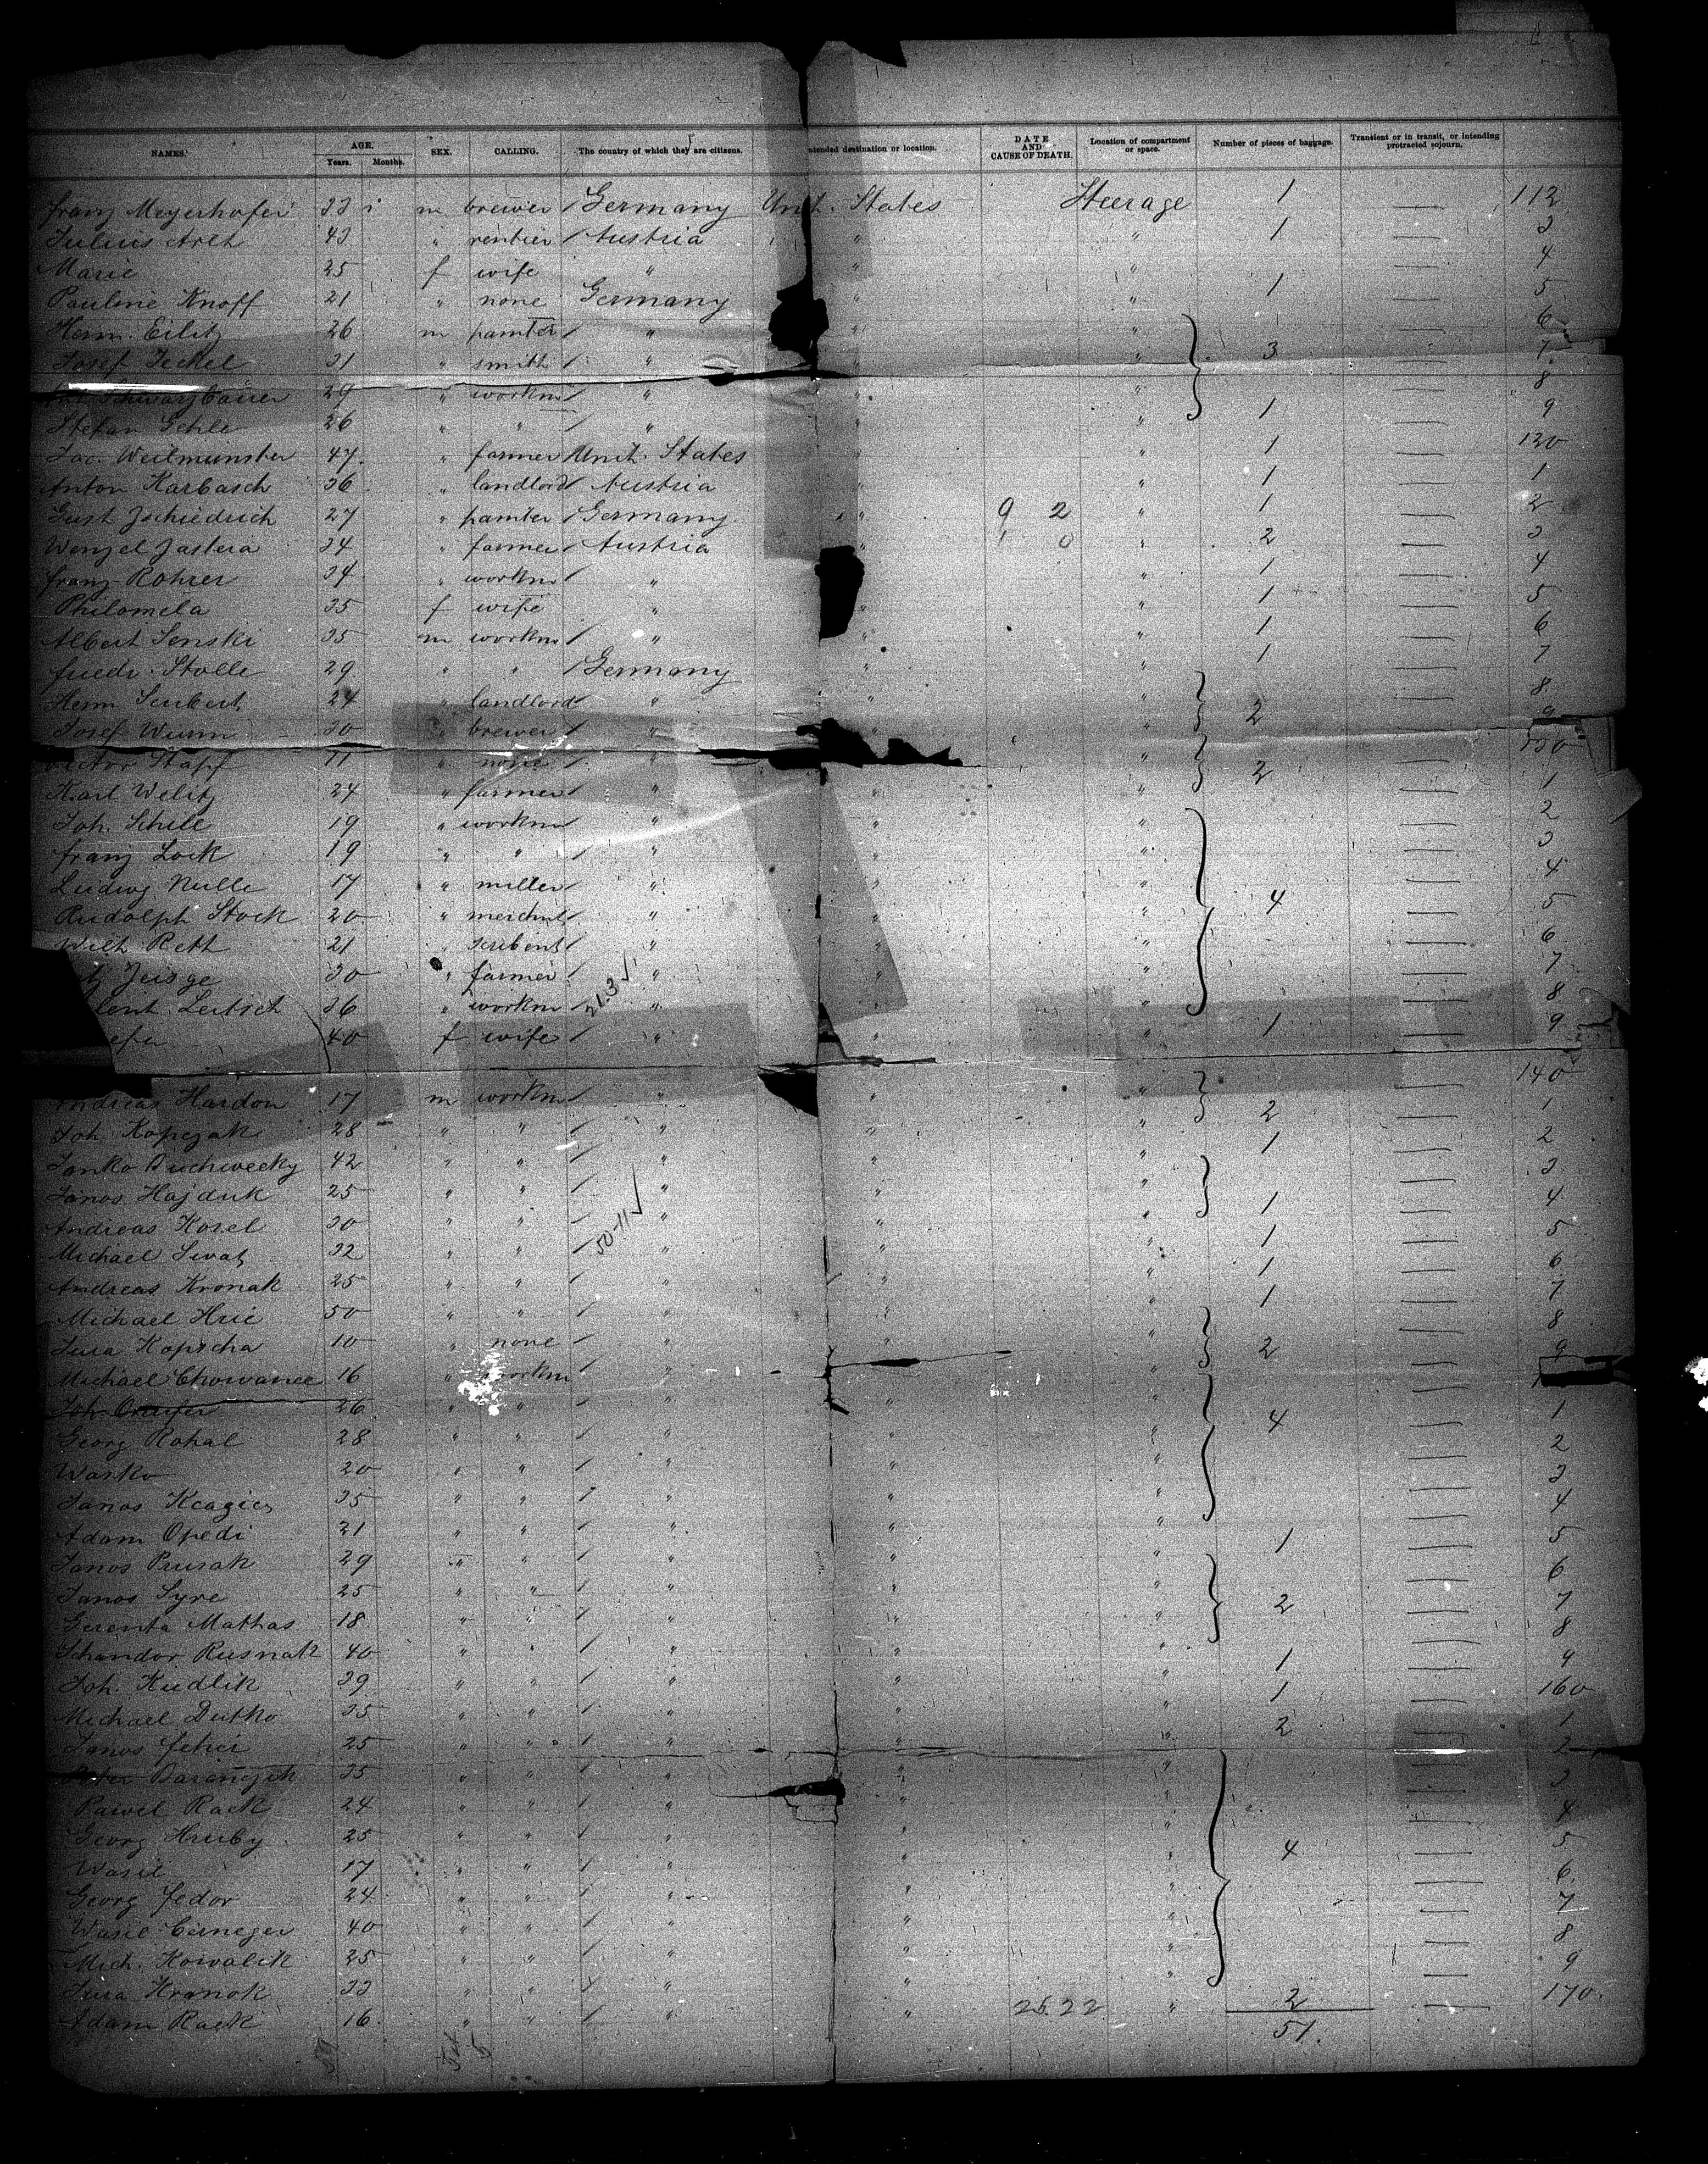 NAMES. AGE. Years. Months. SEX. CALLING. The country of which they are citizens. Intended destination or location. DATE AND CAUSE OF DEATH. Location of compartment or space. Number of pieces of baggage. Transient or in transit, or intending protracted sojourn.
Franz Meyerhofer 33 m brewer / Germany Unit. States Steerage 1 — 112
Julius 43 " rentier / Austria " " 1 — 3
Marie 25 f wife " " " — 4
Pauline Knoff 21 " none Germany " " 1 — 5
Herm. Eilitz 26 m painter / " " " — 6
Josef Jeckel 31 " smith / " " " 3 — 7
29 " workm / " " " — 8
Stefan Gehle 26 " " / " " 1 — 9
Jac. Weilmünster 47 " farmer Unit. States " 1 — 120
Anton Karbasch 36 " landlord / Austria " " 1 — 1
Gust Zschiedrich 27 " painter / Germany " 9 2 " 1 — 2
Wenzel Jastera 34 " farmer / Austria " " 2 — 3
Franz Rohrer 34 " workm / " " 1 — 4
Philomela 35 f wife " " " 1 — 5
Albert Senski 35 m workm / " " " 1 — 6
Friedr. Stolle 29 " " / Germany " " 1 — 7
Herm Seubert 24 " landlord / " " " — 8
Josef Wurm 30 " brewer / " " " 2 — 9
Stapf 11 " none / " " — 130
Karl Welitz 24 " farmer / " " " 2 — 1
Joh. Schile 19 " workm " " " — 2
Franz Lock 19 " " / " " " — 3
Ludwig Nulle 17 " miller / " " " — 4
Rudolph Stock 20 " merchnt / " " " 4 — 5
Wilh. Reth 21 " scribent / " " " — 6
30 " farmer / " " " — 7
Leitsch 36 " workm 21.3 √ " " " — 8
40 f wife / " " " 1 — 9
140
Andreas Hardon 17 m workm / " " " 2 — 1
Joh. Kopczak 28 " " / " " " 1 — 2
Janko 42 " " / " " " — 3
Janos Hajduk 25 " " / " " 1 — 4
Andreas Kosel 30 " " / 50-11 √ " " " 1 — 5
Michael 32 " " / " " " 1 — 6
Andreas Kronak 25 " " / " " " 1 — 7
Michael Hric 50 " " / " " " — 8
Jura Kopscha 10 " none / " " " 2 — 9
Michael Chowanec 16 " workm / " "
Joh. 26 " " / " " " 4 — 1
Georg Rohal 28 " " / " " " — 2
Wasko 20 " " / " " " — 3
Janos 35 " " / " " " — 4
Adam Opedi 21 " " / " " " 1 — 5
Janos Prusak 29 " " / " " " — 6
Janos Syre 25 " " / " " " 2 — 7
Gerenta Mathas 18 " " / " " — 8
Schandor Rusnak 40 " " / " " " 1 — 9
Joh. Kudlik 39 " " / " " " 1 — 160
Michael Dutko 35 " " / " " " 2 — 1
Janos Feher 25 " " / " " — 2
35 " " / " " " — 3
Pawel Rack 24 " " / " " " — 4
Georg Hruby 25 " " / " " " 4 — 5
Wasil 17 " " / " " " — 6
Georg Fedor 24 " " / " " " — 7
Wasil 40 " " / " " " — 8
Mich. Kowalik 25 " " / " " " — 9
Jura Hronok 33 " " / " " " 2 — 170.
Adam Rack 16 " " / " 25.22 " 51.